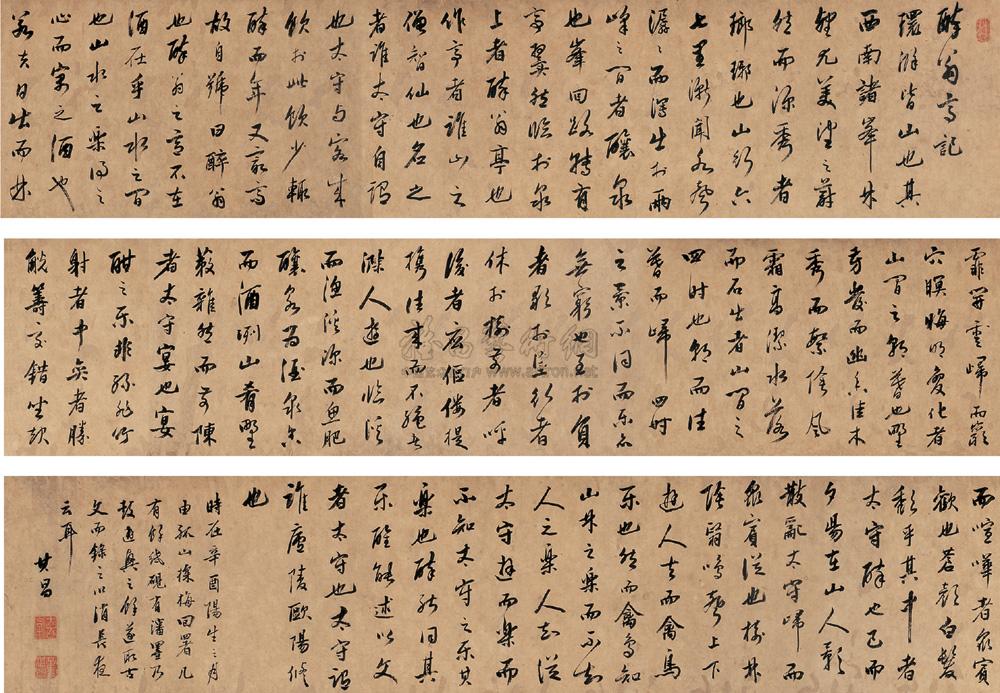 醉翁亭記
環滁皆山也其
西南諸峯林
壑尤美望之蔚
然而深秀者
瑯琊也山行六
七里漸聞水聲
潺潺而瀉出於兩
峰之間者釀泉
也峯回路轉有
亭翼然臨於泉
上者醉翁亭也
作亭者誰山之
僧智仙也名之
者誰太守自謂
也太守与客来
飲於此飲少輒
醉而年又最高
故自號曰醉翁
也醉翁之意不在
酒在乎山水之間
也山水之樂得之
心而寓之酒也
若夫日出而林
霏開雲歸而巖
穴暝晦明變化者
山間之朝暮也野
芳發而幽香佳木
秀而繁陰風
霜高潔水落
而石出者山間之
四時也朝而往
暮而歸四時
之景不同而樂亦
無窮也至於負
者歌於途行者
休於樹前者呼
後者應傴僂提
攜往來而不絕者
滁人遊也臨溪
而漁溪深而魚肥
釀泉為酒泉香
而酒洌山肴野
蔌雜然而前陳
者太守宴也宴
酣之樂非絲非竹
射者中弈者勝
觥籌交錯坐起
而喧嘩者眾賓
歡也蒼顏白髮
頹乎其中者
太守醉也已而
夕陽在山人影
散亂太守歸而
眾賓從也樹林
陰翳鳴聲上下
遊人去而禽鳥
樂也然而禽鳥知
山林之樂而不知
人之樂人知從
太守遊而樂而
不知太守之樂其
樂也醉能同其
樂醒能述以文
者太守也太守謂
誰廬陵歐陽修
也
時在辛酉陽生之月
由孤山探梅回署几
有餘紙硯有瀋墨乃
鼓逸興之餘遂取古
文而錄之以消長夜
云耳
其昌